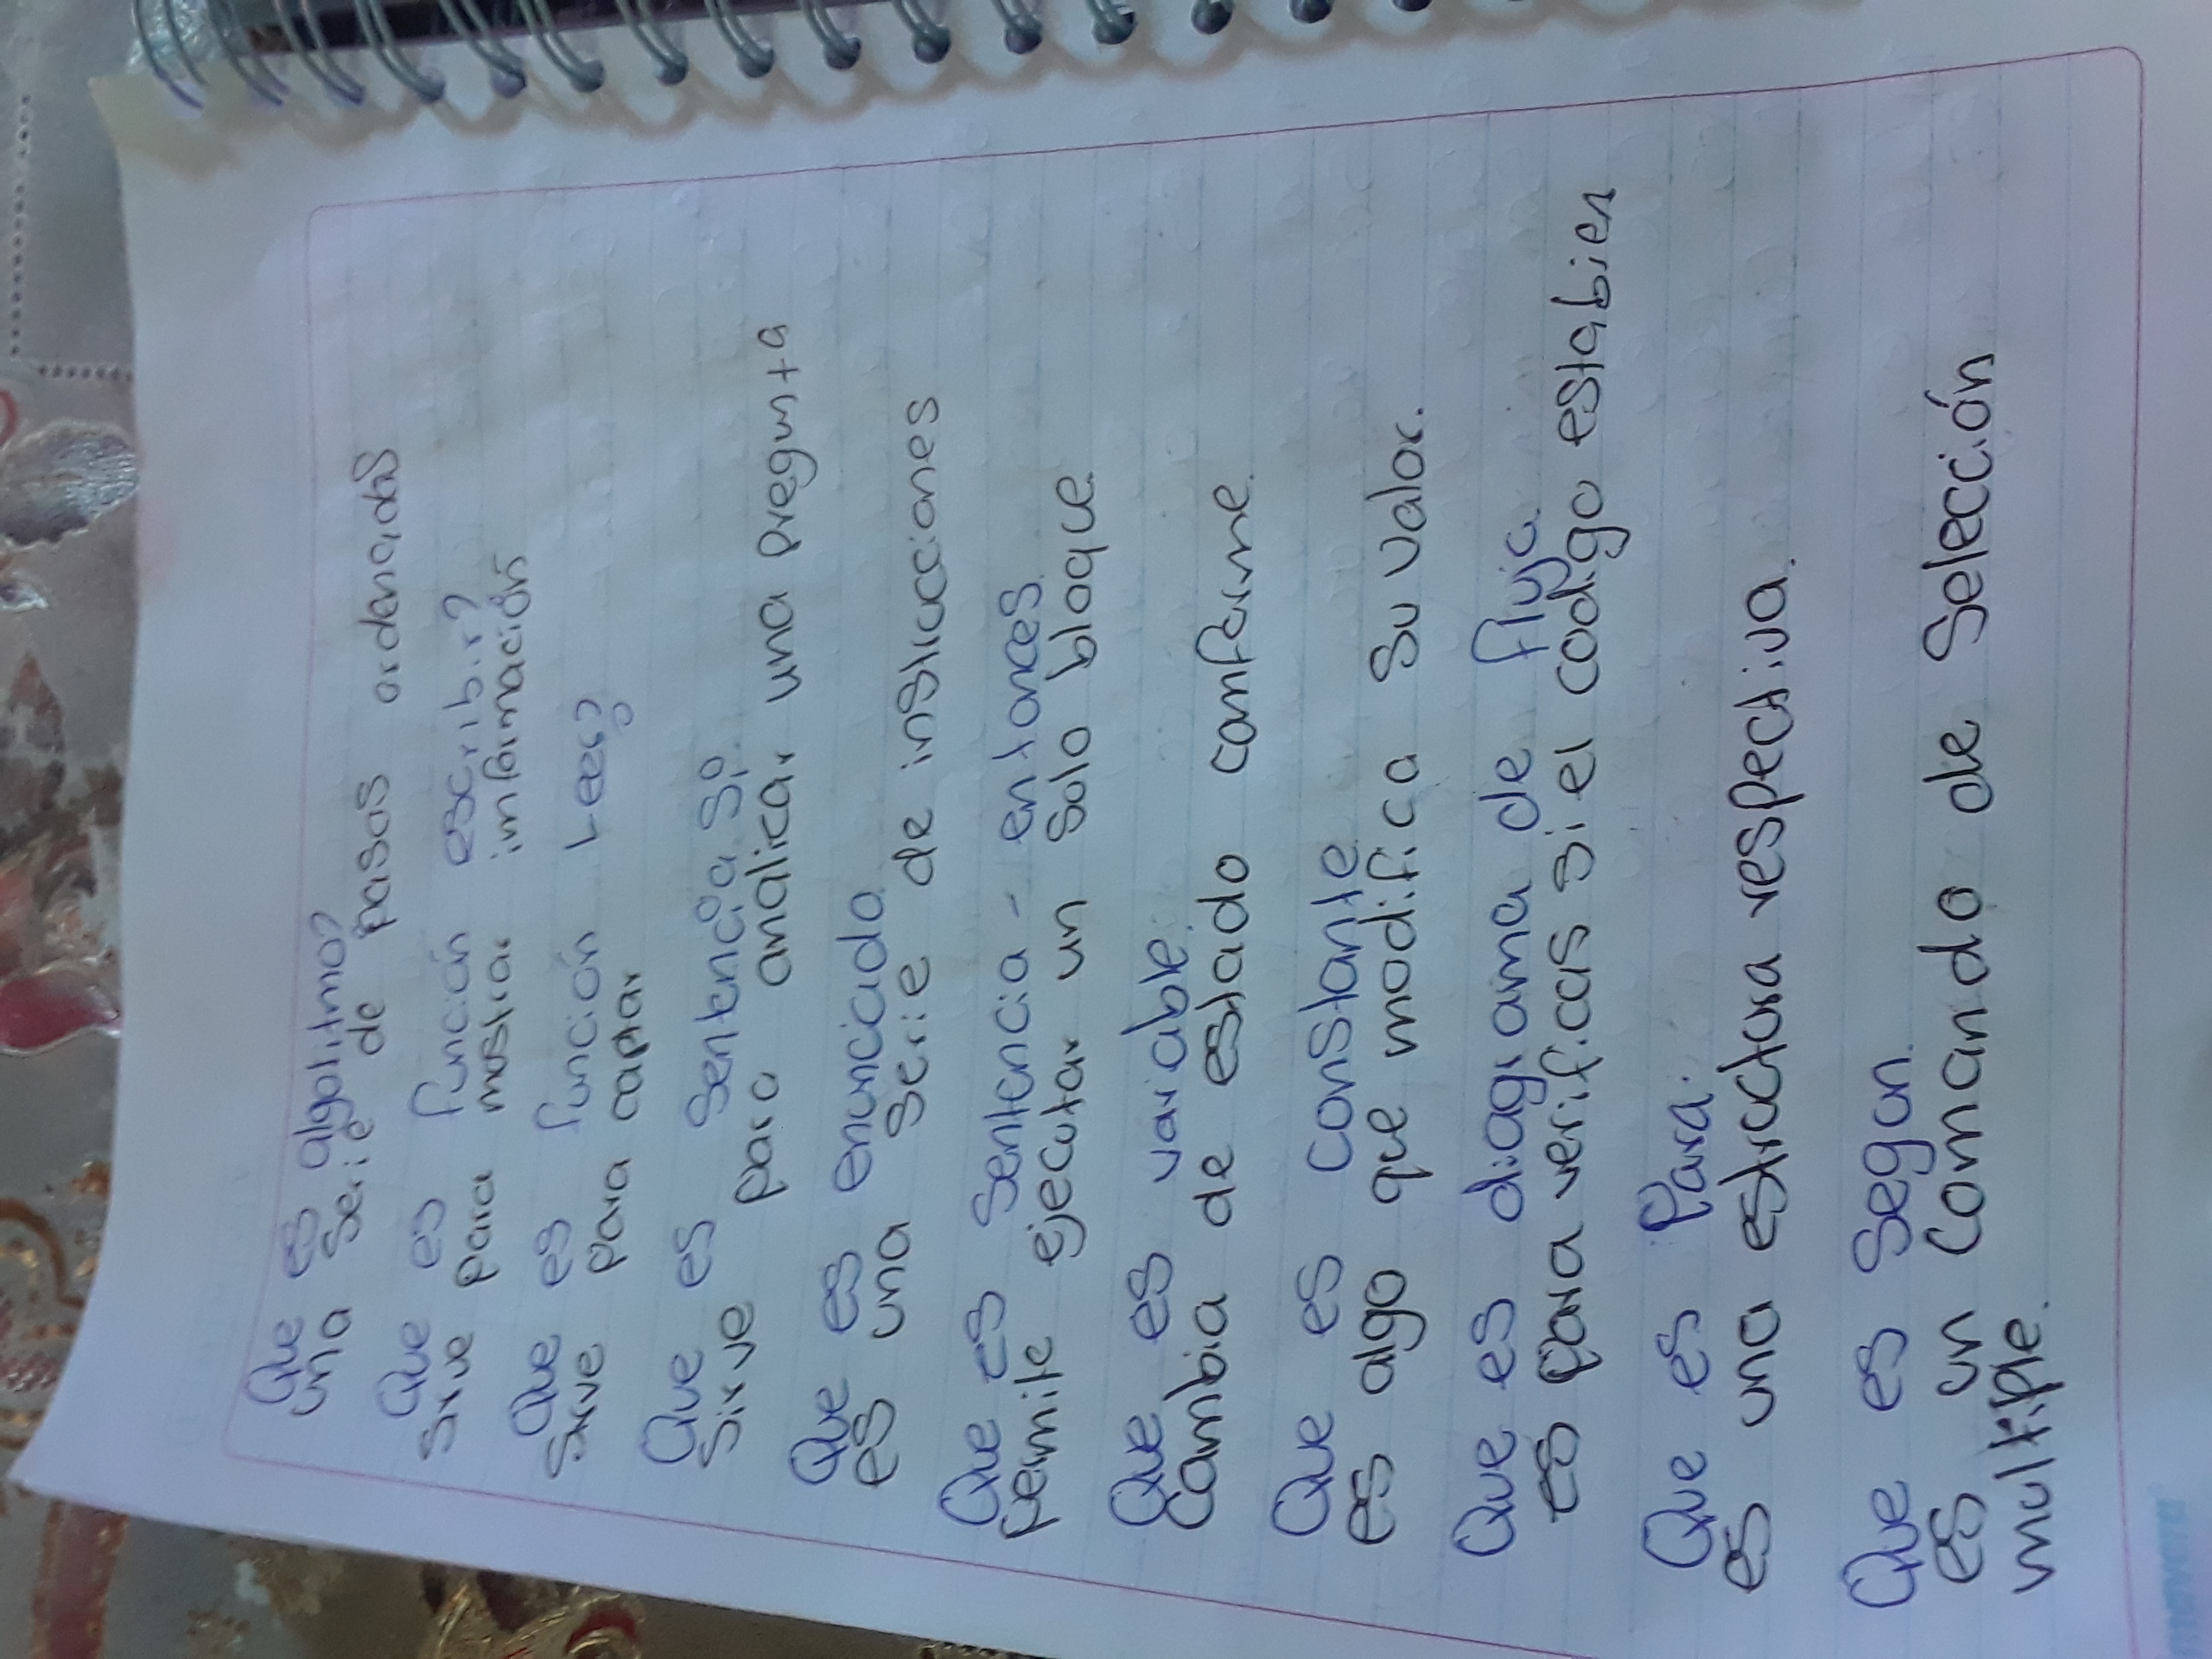 Que es algoritmo?
una serie de pasos ordenados
Que es función escribir?
sirve para mostrar información
Que es función Leer?
sirve para captar
Que es sentencia si
sirve para analicar una pregunta
Que es enunciado
es una serie de instrucciones
Que es sentencia - entonces
permite ejecutar un solo bloque
Que es variable.
Cambia de estado conforme.
Que es constante
es algo que modifica su valor.
Que es diagrama de flujo.
es para verificas si el codigo estabien
Que es Para.
es una estructura respectiva.
Que es Segun.
es un Comando de Selección
multiple.